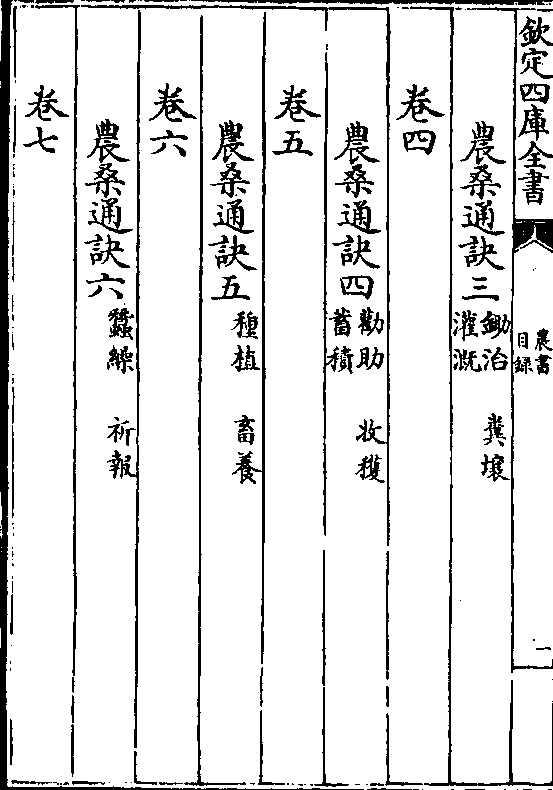 欽定四庫全書
農書
目録
一
農桑通訣三
鋤治 糞壤
灌溉
卷四
農桑通訣四
勸助 收穫
蓄積
卷五
農桑通訣五
種植 畜養
卷六
農桑通訣六
蠶繰 祈報
卷七